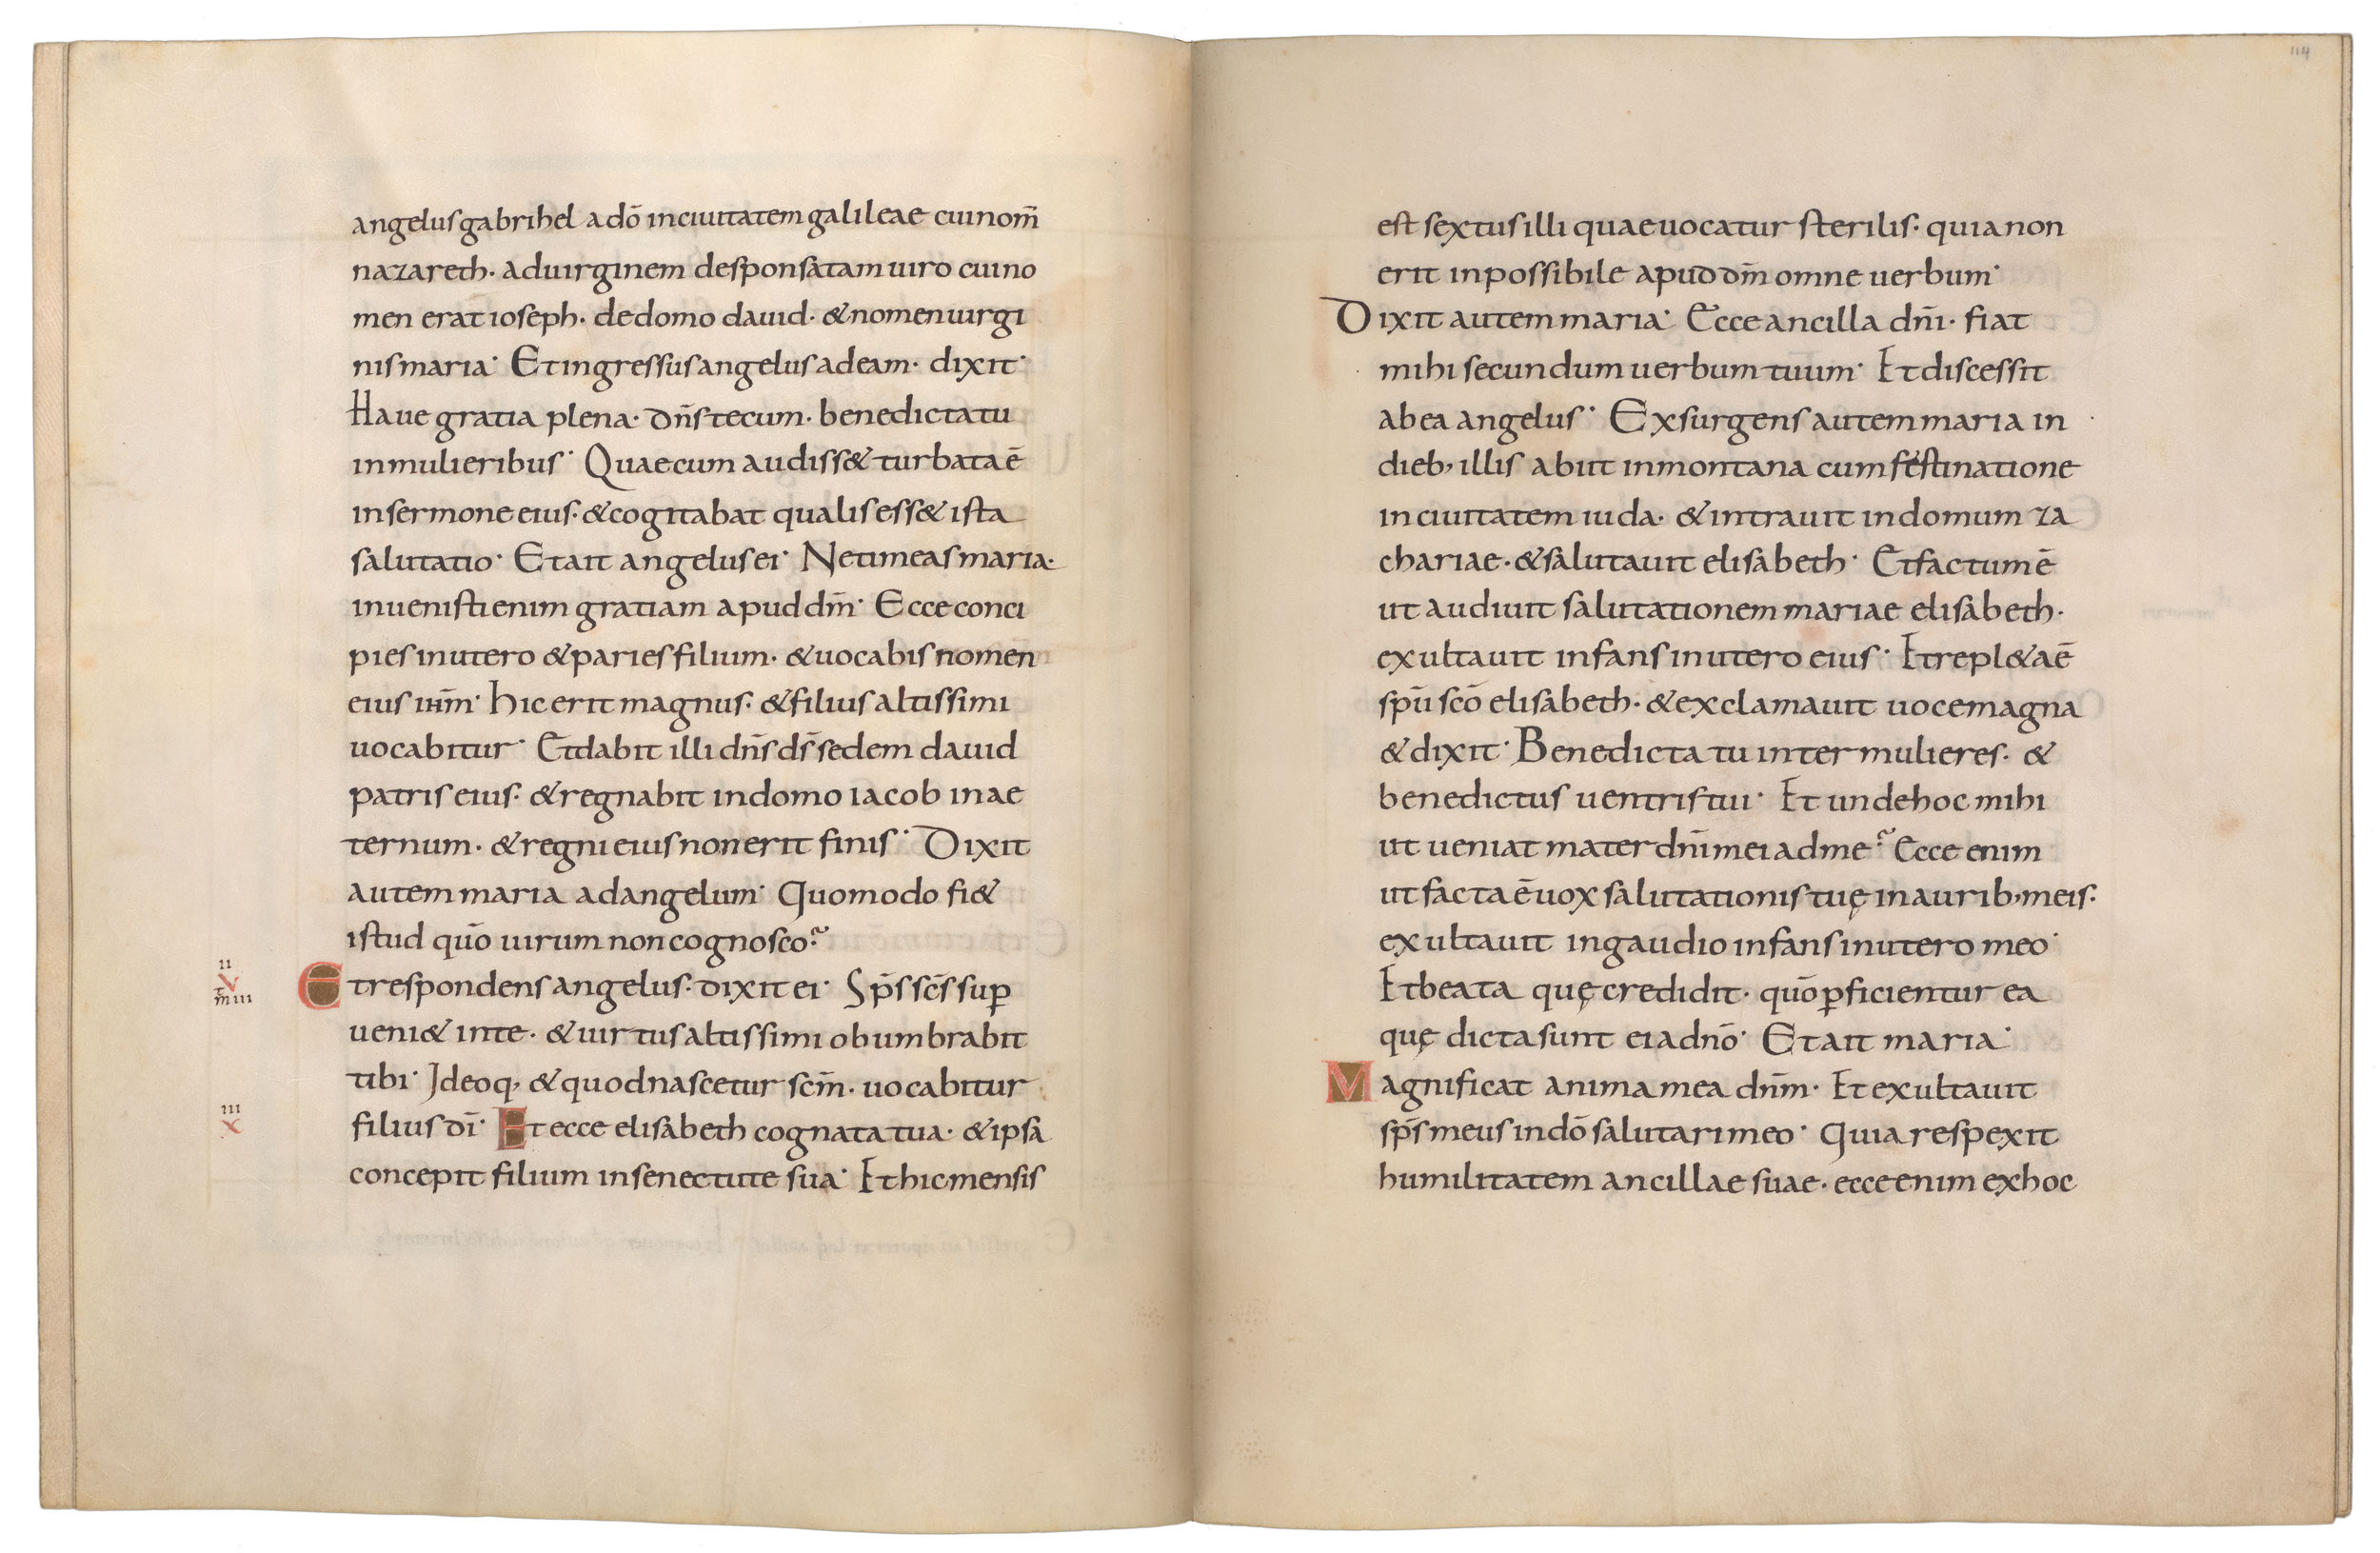 angelus gabrihel a dō in ciuitatem galileae cui nom̄
nazareth· ad uirginem desponsatam uiro cui no
men erat ioseph· de domo dauid· & nomen uirgi
nis maria· Et ingressus angelus ad eam· dixit·
Haue gratia plena· dn̄s tecum· benedicta tu
in mulieribus· Quae cum audiss& turbata ē
in sermone eius· & cogitabat qualis ess& ista
salutatio· Et ait angelus ei· Ne timeas maria·
inuenisti enim gratiam apud dm̄· Ecce conci
pies in utero & paries filium· & uocabis nomen
eius ihm̄· hic erit magnus· & filius altissimi
uocabitur· Et dabit illi dn̄s ds̄ sedem dauid
patris eius· & regnabit in domo iacob in ae
ternum· & regni eius non erit finis· Dixit
autem maria ad angelum· Quomodo fi&
istud quō uirum non cognosco?
II
V
m̄ III
Et respondens angelus· dixit ei· Sp̄s sc̄s suꝑ
ueni& in te· & uirtus altissimi obumbrabit
tibi· Ideoq, & quod nascetur scm̄· uocabitur
III
X
filius dī· Et ecce elisabeth cognata tua· & ipsa
concepit filium in senectute sua· Et hic mensis
114
est sextus illi quae uocatur sterilis· quia non
erit inpossibile apud dm̄ omne uerbum·
Dixit autem maria· Ecce ancilla dn̄i· fiat
mihi secundum uerbum tuum· Et discessit
ab ea angelus· Exsurgens autem maria in
dieb, illis abiit in montana cum festinatione
in ciuitatem iuda· & intrauit in domum za
chariae· & salutauit elisabeth· Et factum ē
ut audiuit salutationem mariae elisabeth·
exultauit infans in utero eius· Et repl&a ē
spū scō elisabeth· & exclamauit uoce magna
& dixit· Benedicta tu inter mulieres· &
benedictus uentris tui· Et unde hoc mihi
ut ueniat mater dn̄i mei ad me? Ecce enim
ut facta ē uox salutationis tuę in aurib, meis·
exultauit in gaudio infans in utero meo·
Et beata quę credidit· quō ꝑficientur ea
quę dicta sunt ei a dn̄o· Et ait maria·
Magnificat anima mea dn̄m· Et exultauit
sp̄s meus in dō salutari meo· Quia respexit
humilitatem ancillae suae· ecce enim ex hoc